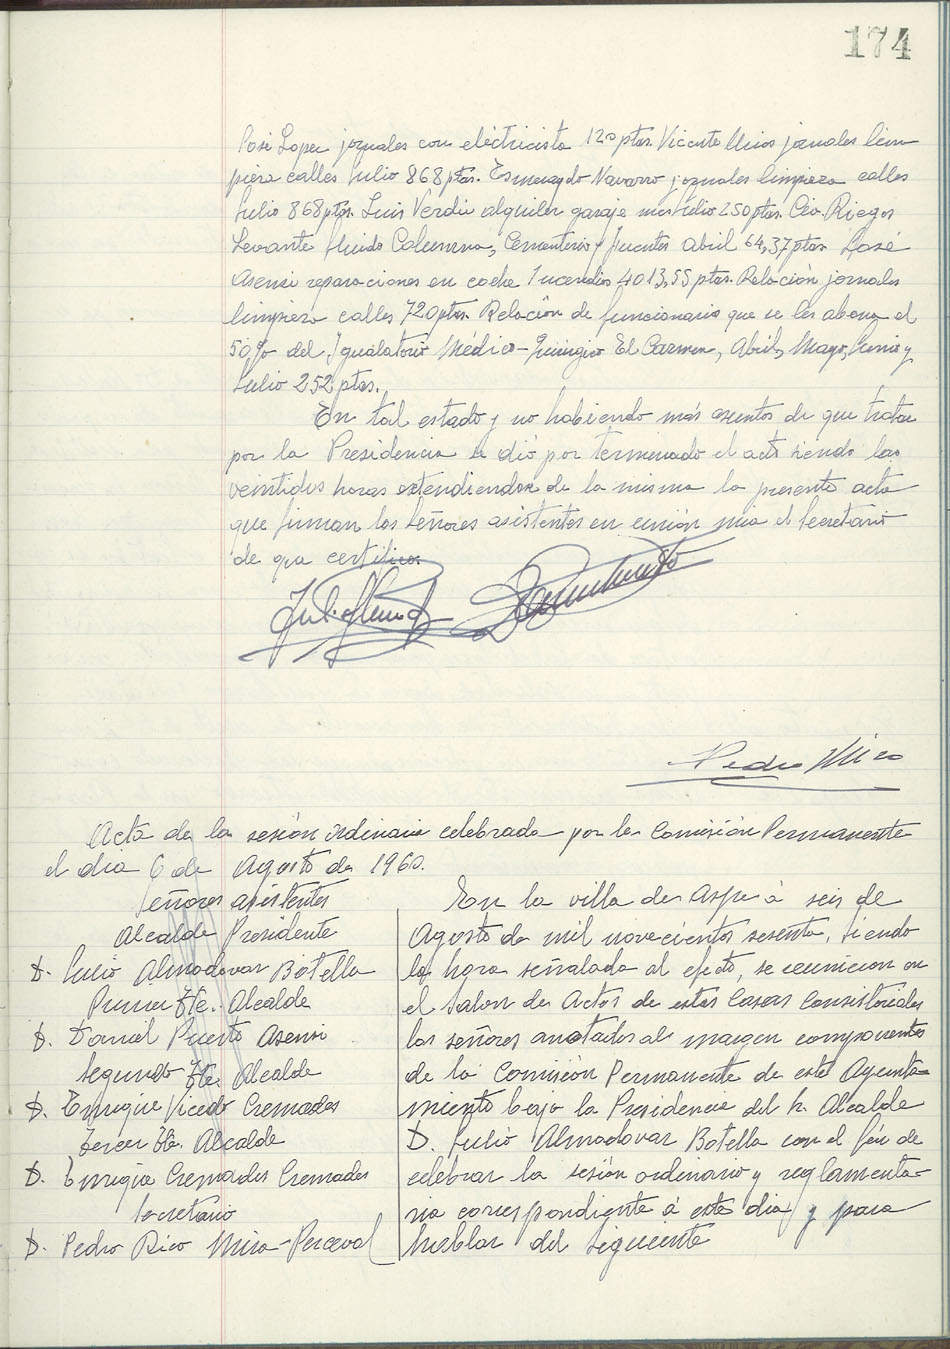 174
José Lopez jornales con eléctricista 120 ptas. Vicente Mios jornales lim
pieza calles Julio 868 ptas. Esmeragdo Navarro jornales limpieza calles
Julio 868 ptas. Luis Verdú alquiler garaje mes Julio 250 ptas. Cia. Riegos
Levante fluido Columna, Cementerio y fuentes abril 64,37 ptas. José
Asensi reparaciones en coche Incendios 4013,55 ptas. Relación jornales
limpieza calles 720 ptas. Relación de funcionarios que se les abona el
50% del Igualatorio Médico-Quirugico El Carmen, Abril, Mayo, Junio y
Julio 252 ptas.
En tal estado y no habiendo más asuntos de que tratar
por la Presidencia se dió por terminado el acto siendo las
veintidos horas extendiendose de la misma la presente acta
que firman los Señores asistentes en unión mia el Secretario
de que certifico.
Pedro Mira
Acta de la sesión ordinaria celebrada por la Comisión Permanente
el dia 6 de Agosto de 1960.
Señores asistentes
Alcalde Presidente
D. Julio Almodovar Botella
Primer Tte. Alcalde
D. Daniel Puerto Asensi
Segundo Tte. Alcalde
D. Enrique Vicedo Cremades
Tercer Tte. Alcalde
D. Enrique Cremades Cremades
Secretario
D. Pedro Rico Mira-Perceval
En la villa de Aspe á seis de
Agosto de mil novecientos sesenta, siendo
la hora señalada al efecto, se reunieron en
el Salon de Actos de estas Casas Consistoriales
los señores anotados al margen componentes
de la Comisión Permanente de este Ayunta-
miento bajo la Presidencia del Sr. Alcalde
D. Julio Almodovar Botella con el fin de
celebrar la sesión ordinaria y reglamenta-
ria correspondiente á este dia y para
hablar del siguiente